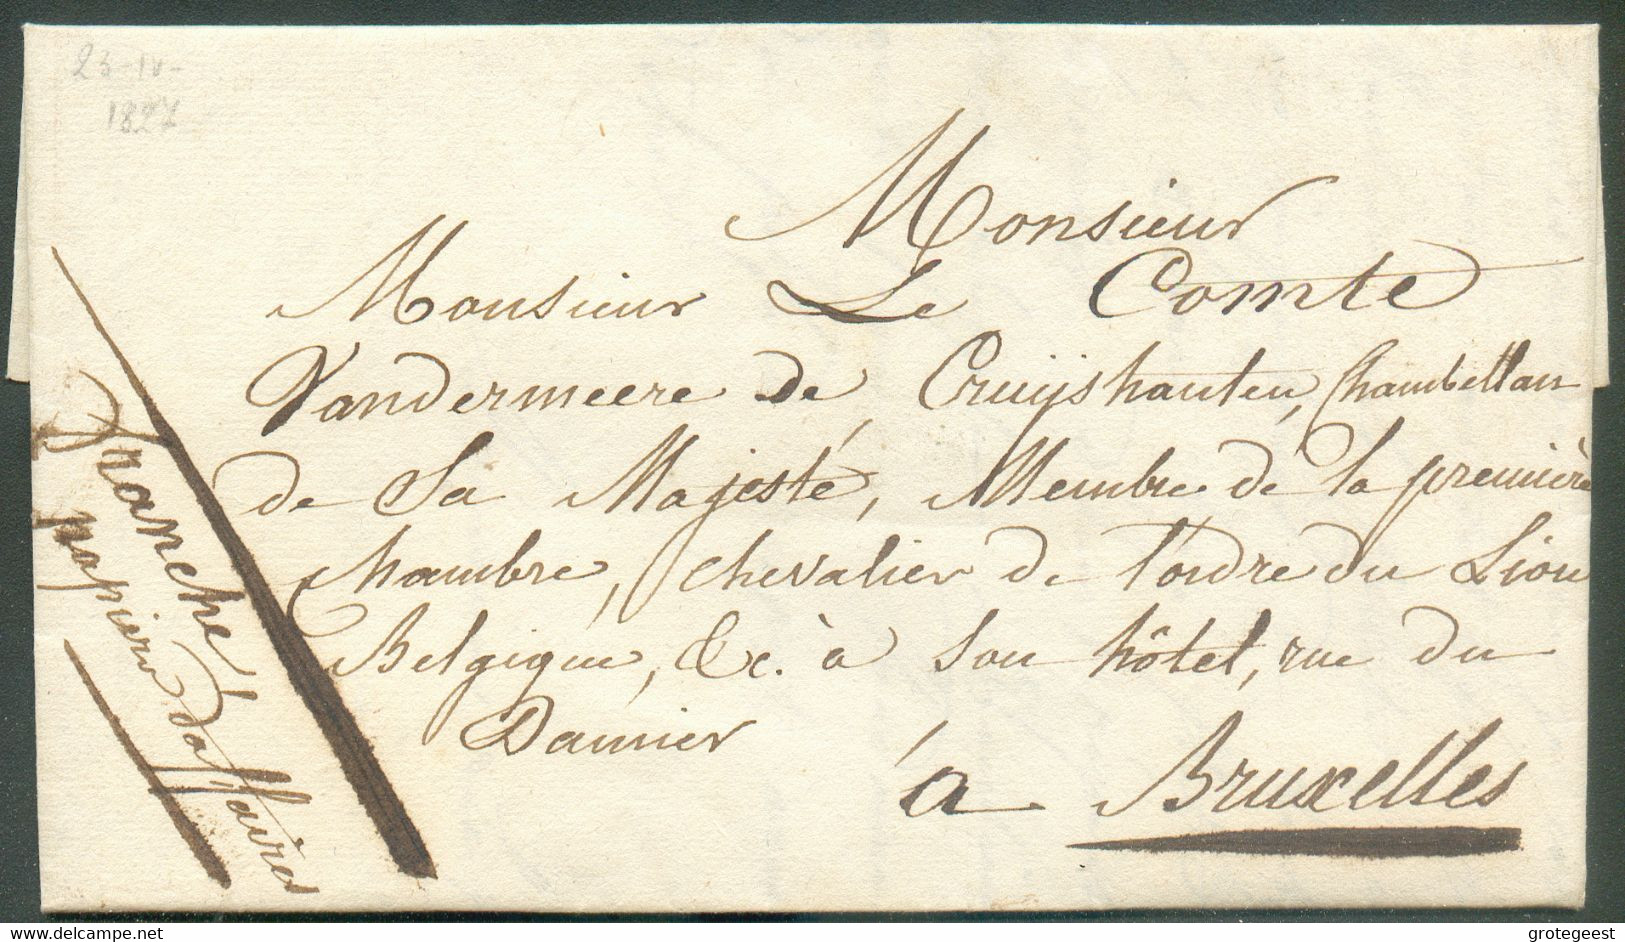 23-IV-
1827
Monsieur
Monsieur Le Comte
Vandermeere de Cruijshauten, Chambellan
de Sa Majesté, Membre de la première
Chambre, chevalier de l'ordre du Lion
Belgique, &c. à son hôtel, rue du
Damier
à Bruxelles
franche
papiers d'affaires
www.delcampe.net
grotegeest